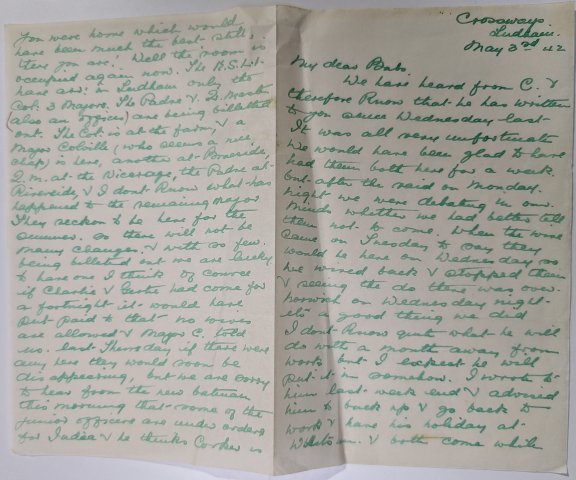 Crossways
Ludham.
May 3rd 42
My dear Babs.
We have heard from C. &
therefore know that he has written
to you since Wednesday last.
It was all very unfortunate
We would have been glad to have
had them both here for a week.
but after the raid on Monday.
night we were debating in our.
minds whether we had better tell
them not to come. When the wire
came on Tuesday to say they
would be here on Wednesday so
we wired back & stopped them
& seeing the do there was over
Norwich on Wednesday night
its a good thing we did
I dont know quite what he will
do with a month away from
work but I expect he will
put it in somehow. I wrote to
him last week end & advised
him to buck up & go back to
work & have his holiday at
& both come while
you were home which would
have been much the best still,
there you are. Well the room is
occupied again now. The
have arr: in Ludham only the
Col: 3 Majors. The Padre &
(also an officer) are being billetted
out. The Col. is at the farm, & a
Major Colville (who seems a nice
chap) is here, another at
Q.M. at the Vicarage, the Padre at
Riverside, & I dont know what has
happened to the remaining Major
They reckon to be here for the
summer. so there will not be
many changes. & with so few.
being billeted out we are lucky
to have one I think Of course
if Charlie & had come for
a fortnight it would have
put paid to that no wives
are allowed & Major C. told
us. last Thursday if there were
any here they would soon be
disappearing, but we are sorry
to hear from the new batman
this morning that some of the
junior officers are under orders
for India & he thinks is